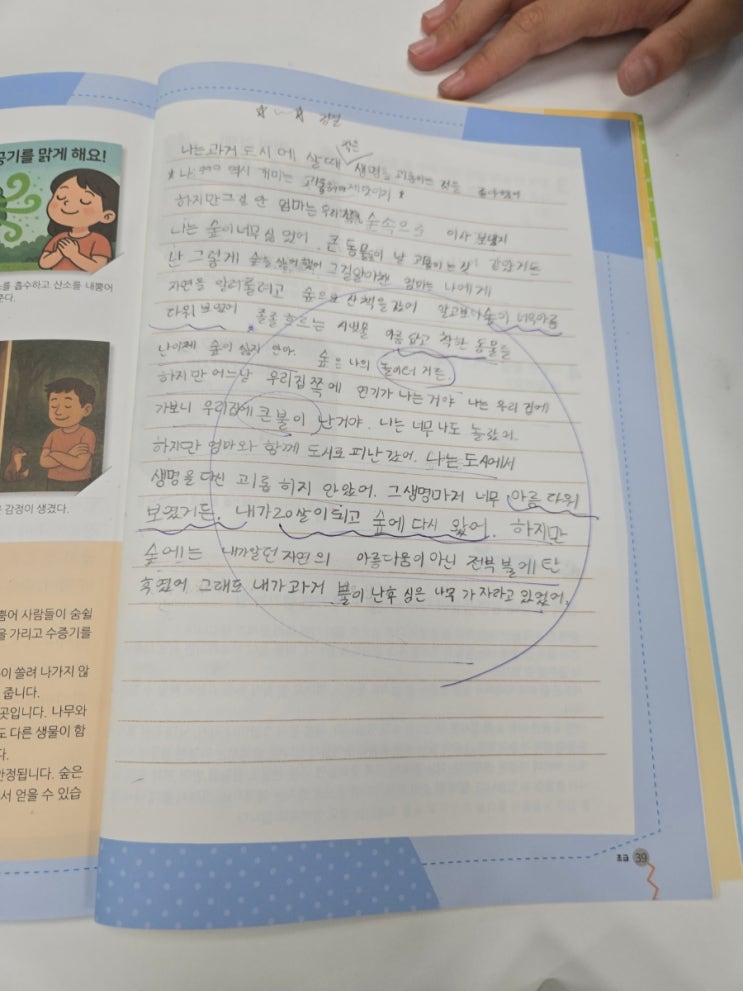 공기를 맑게 해요!
를 흡수하고 산소를 내뿜어
준다.
감정이 생겼다.
뿜어 사람들이 숨쉴
을 가리고 수증기를
이 쓸려 나가지 않
줍니다.
곳입니다. 나무와
도 다른 생물이 함
다.
안정됩니다. 숲은
서 얻을 수 있습
작은
나는 과거 도시에 살때 생명을 괴롭히는 것을 좋아했어
역시 개미는 괴롭혀야 제맛이지
하지만 그걸 안 엄마는 우리 숲속으로 이사 보냈지
나는 숲이 너무 싫었어. 큰 동물들이 날 괴롭히는 것 같았거든
난 그렇게 숲을 싫어했어 그걸 알아챈 엄마는 나에게
자연을 알려줄려고 숲으로 산책을 갔어 알고보니 숲이 너무 아름
다워 보였어 졸졸 흐르는 시냇물 아름답고 착한 동물들
난 이제 숲이 싫지 안아. 숲은 나의 놀이터 거든
하지만 어느날 우리집쪽에 연기가 나는거야 나는 우리 집에
가보니 우리집에 큰불이 난거야. 나는 너무나도 놀랐어.
하지만 엄마와 함께 도시로 피난 갔어. 나는 도시에서
생명을 다신 괴롭히지 안았어. 그 생명마저 너무 아름다워
보였거든. 내가 20살이 되고 숲에 다시 왔어. 하지만
숲에는 내가 알던 자연의 아름다움이 아닌 전부 불에 탄
흑였어 그래도 내가 과거 불이 난후 심은 나무가 자라고 있었어.
초급 39